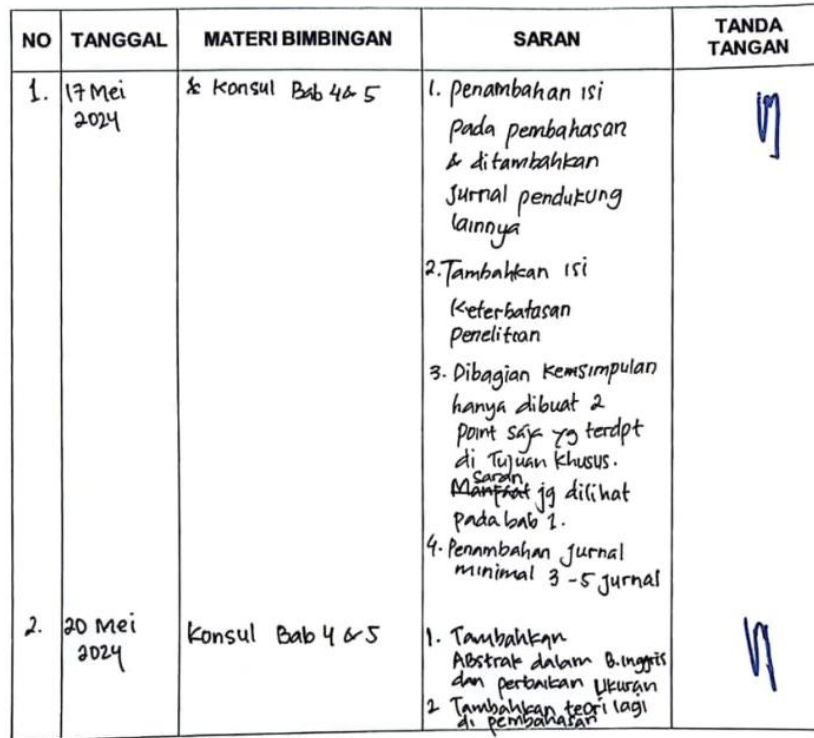 NO TANGGAL MATERI BIMBINGAN SARAN TANDA TANGAN
1. 17 Mei 2024
& Konsul Bab 4 & 5
1. Penambahan isi
pada pembahasan
& ditambahkan
Jurnal pendukung
lainnya
2. Tambahkan isi
Keterbatasan
Penelitian
3. Dibagian Kemsimpulan
hanya dibuat 2
Point saja yg terdpt
di Tujuan Khusus.
Saran
Manfaat jg dilihat
pada bab 1.
4. Penambahan Jurnal
minimal 3-5 Jurnal
2. 20 Mei 2024
Konsul Bab 4 & 5
1. Tambahkan
Abstrak dalam B.Inggris
dan perbaikan Ukuran
2 Tambahkan teori lagi
di pembahasan